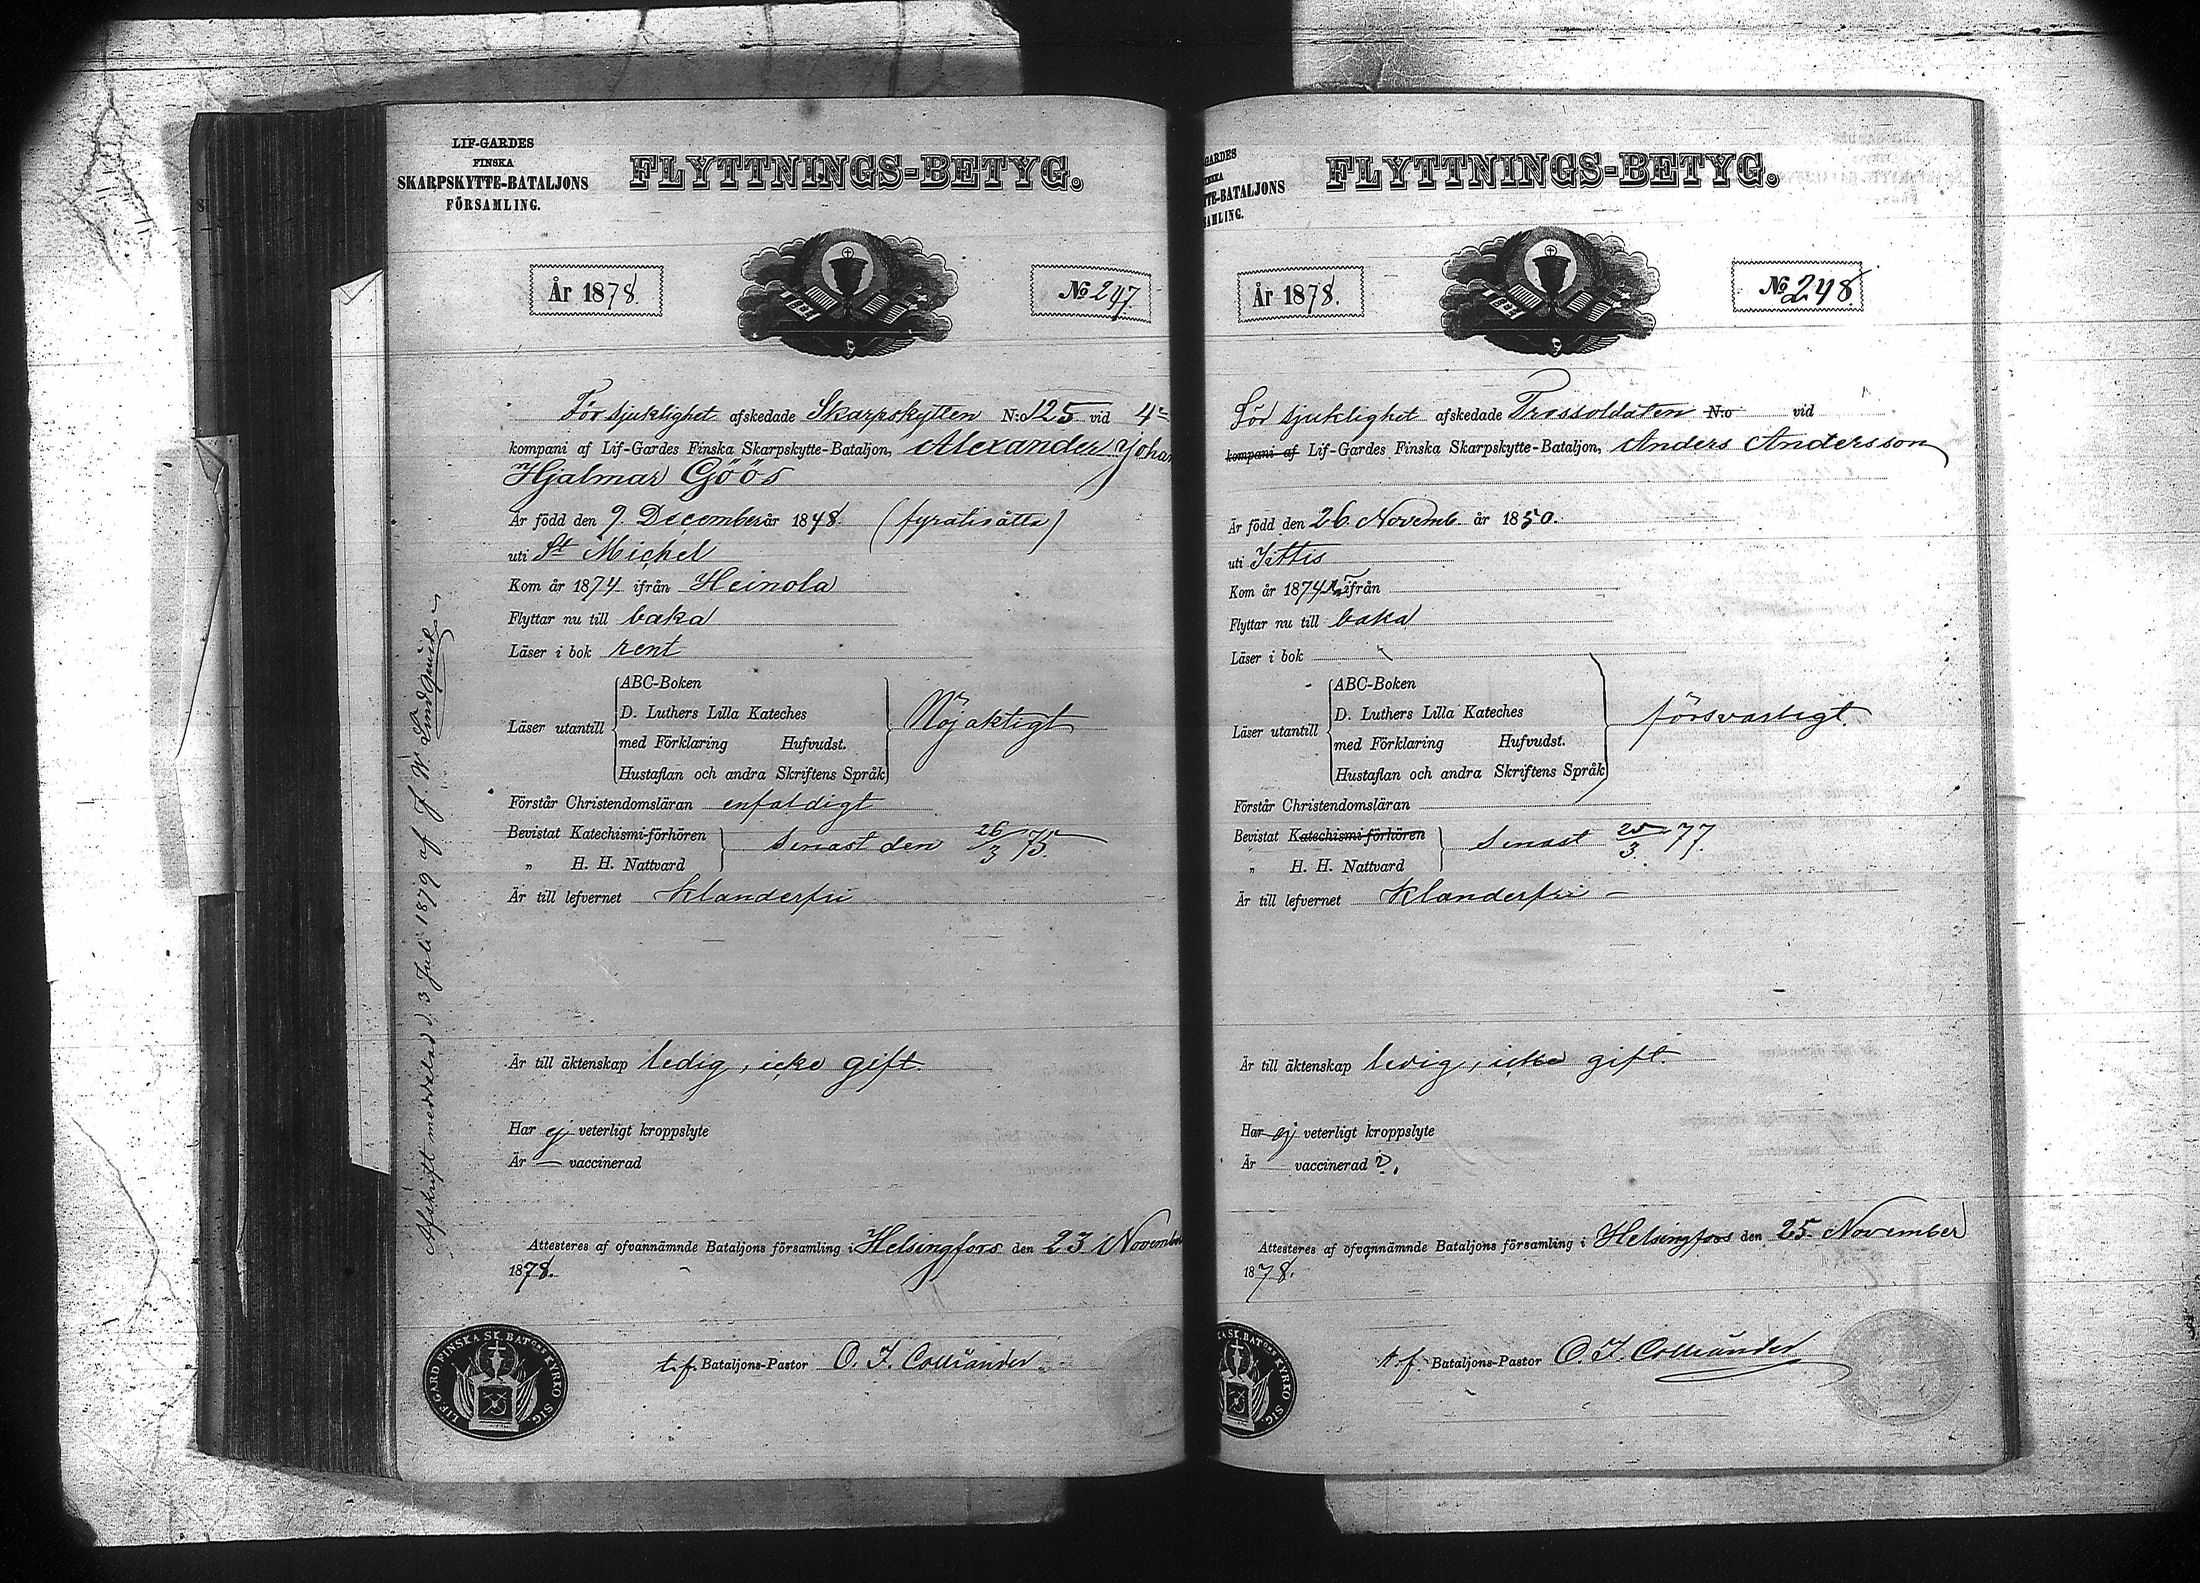 LIF-GARDES
FINSKA
SKARPSKYTTE-BATALJONS
FÖRSAMLING.
FLYTTNINGS-BETYG.
År 1878.
No 247.
För sjuklighet afskedade Skarpskytten N:o 125 vid 4
kompani af Lif-Gardes Finska Skarpskytte-Bataljon, Alexander Johan
Hjalmar Göös
Är född den 9. December år 1848. (fyratioåtta)
uti St Michel
Kom år 1874 ifrån Heinola
Flyttar nu till baka
Läser i bok rent
Läser utantill
ABC-Boken
D. Luthers Lilla Kateches
med Förklaring Hufvudst.
Hustaflan och andra Skriftens Språk
Nöjaktigt
Förstår Christendomsläran enfaldigt
Bevistat Katechismi-förhören
„ H. H. Nattvard
senast den 26/3 75.
Är till lefvernet klanderfri
Är till äktenskap ledig, icke gift.
Har ej veterligt kroppslyte
Är — vaccinerad
Attesteres af ofvannämnde Bataljons församling i Helsingfors den 23 November
1878.
t.f. Bataljons-Pastor O. F. Colliander
LIF-GARD. FINSKA SK. BAT:ONS KYRKO SIG.
Afskrift meddelad d. 3 Juli 1879 af J. W. Lindquist
GARDES
TE-BATALJONS
FLYTTNINGS-BETYG.
År 1878.
No 248.
För sjuklighet afskedade Trossoldaten N:o vid
kompani af Lif-Gardes Finska Skarpskytte-Bataljon, Anders Andersson
Är född den 26. Novemb. år 1850.
uti Jttis
Kom år 1874 ifrån
Flyttar nu till baka
Läser i bok
Läser utantill
ABC-Boken
D. Luthers Lilla Kateches
med Förklaring Hufvudst.
Hustaflan och andra Skriftens Språk
försvarligt.
Förstår Christendomsläran
Bevistat Katechismi-förhören
„ H. H. Nattvard
senast 25/3 77.
Är till lefvernet klanderfri —
Är till äktenskap ledig, icke gift.
Har ej veterligt kroppslyte
Är vaccinerad ?.
Attesteres af ofvannämnde Bataljons församling i Helsingfors den 25. November
1878.
t.f. Bataljons-Pastor O. F. Colliander
KA SK. BAT:ONS KYRKO SIG.